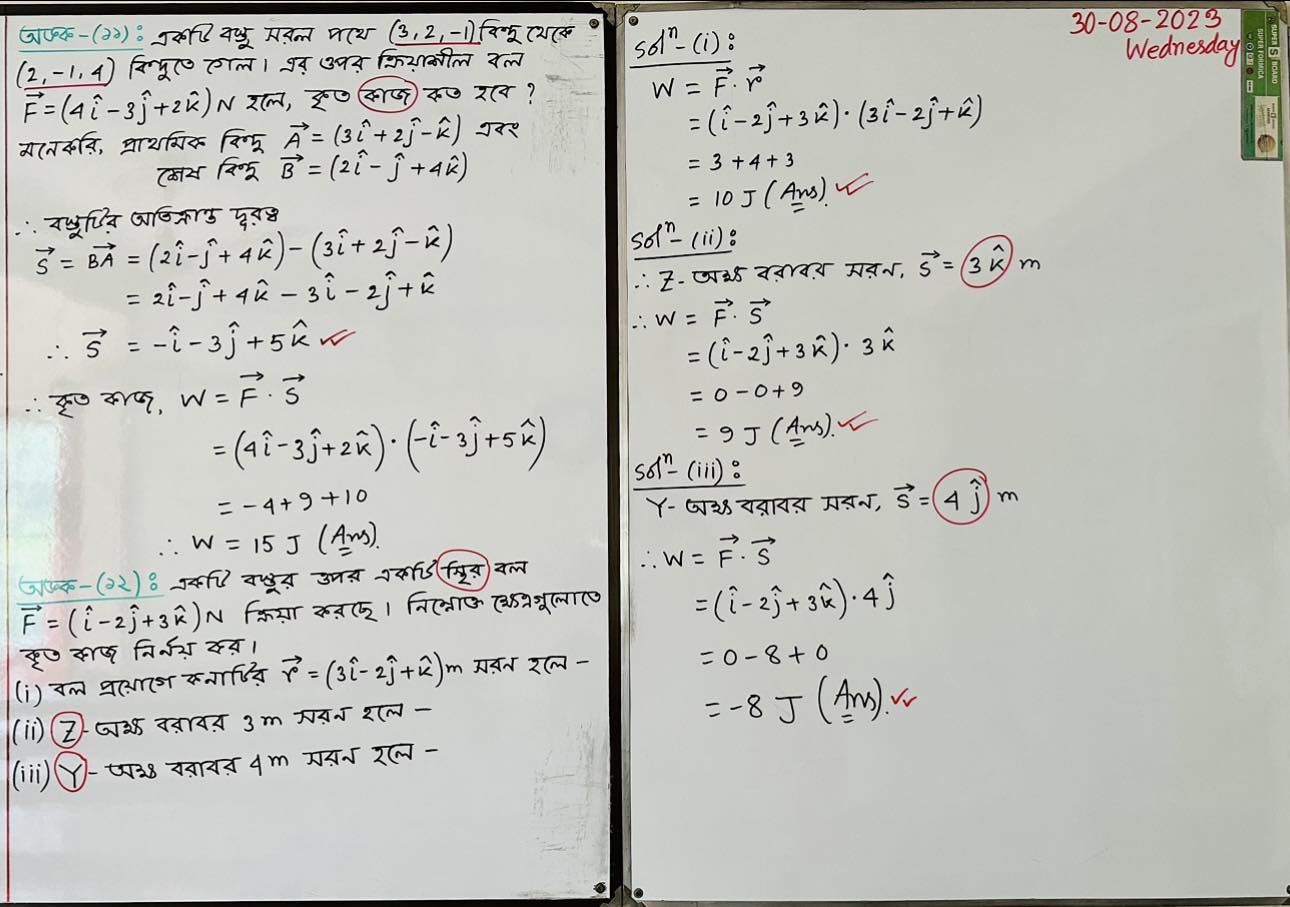 অংক-(১১): একটি বস্তু সরল পথে (3, 2, -1) বিন্দু থেকে
(2, -1, 4) বিন্দুতে গেল। এর ওপর ক্রিয়াশীল বল
F⃗ = (4î - 3ĵ + 2k̂) N হলে, কৃত কাজ কত হবে ?
মনেকরি, প্রাথমিক বিন্দু A⃗ = (3î + 2ĵ - k̂) এবং
শেষ বিন্দু B⃗ = (2î - ĵ + 4k̂)
∴ বস্তুটির অতিক্রান্ত দূরত্ব
S⃗ = BA⃗ = (2î - ĵ + 4k̂) - (3î + 2ĵ - k̂)
= 2î - ĵ + 4k̂ - 3î - 2ĵ + k̂
∴ S⃗ = -î - 3ĵ + 5k̂
∴ কৃত কাজ, W = F⃗ · S⃗
= (4î - 3ĵ + 2k̂) · (-î - 3ĵ + 5k̂)
= -4 + 9 + 10
∴ W = 15 J (Ans).
অংক-(১২): একটি বস্তুর ওপর একটি স্থির বল
F⃗ = (î - 2ĵ + 3k̂) N ক্রিয়া করছে। নিম্নোক্ত ক্ষেত্রগুলোতে
কৃত কাজ নির্নয় কর।
(i) বল প্রয়োগে কনাটির r⃗ = (3î - 2ĵ + k̂) m সরন হলে -
(ii) Z - অক্ষ বরাবর 3 m সরন হলে -
(iii) Y - অক্ষ বরাবর 4 m সরন হলে -
30-08-2023
Wednesday
SUPER S BOARD
SUPER FORMICA
Solⁿ - (i) :
W = F⃗ · r⃗
= (î - 2ĵ + 3k̂) · (3î - 2ĵ + k̂)
= 3 + 4 + 3
= 10 J (Ans).
Solⁿ - (ii) :
∴ Z - অক্ষ বরাবর সরন, S⃗ = 3k̂ m
∴ W = F⃗ · S⃗
= (î - 2ĵ + 3k̂) · 3k̂
= 0 - 0 + 9
= 9 J (Ans).
Solⁿ - (iii) :
Y - অক্ষ বরাবর সরন, S⃗ = 4ĵ m
∴ W = F⃗ · S⃗
= (î - 2ĵ + 3k̂) · 4ĵ
= 0 - 8 + 0
= -8 J (Ans).